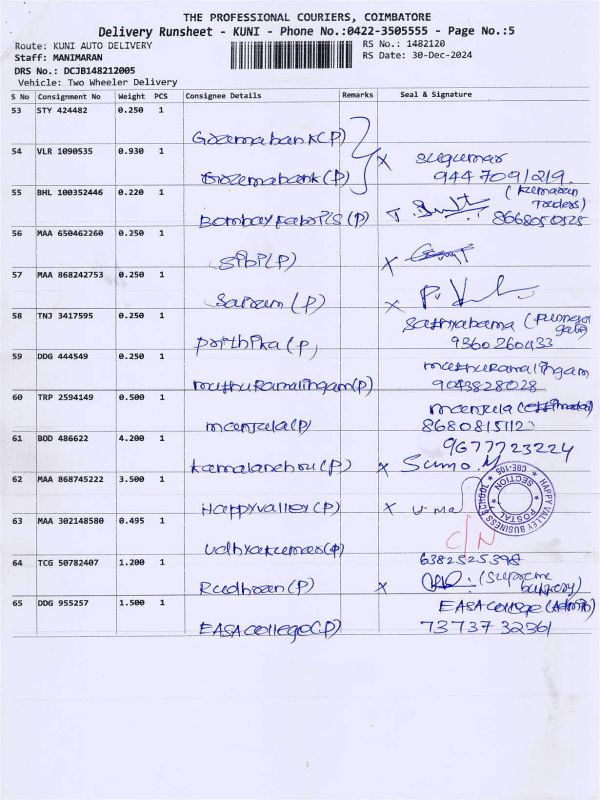 THE PROFESSIONAL COURIERS, COIMBATORE
Delivery Runsheet - KUNI - Phone No.:0422-3505555 - Page No.:5
Route: KUNI AUTO DELIVERY
RS No.: 1482120
Staff: MANIMARAN
RS Date: 30-Dec-2024
DRS No.: DCJB148212005
Vehicle: Two Wheeler Delivery
S No Consignment No Weight PCS Consignee Details Remarks Seal & Signature
53 STY 424482 0.250 1
54 VLR 1090535 0.930 1 (P) x sugumar
(P) 944 7091219
55 BHL 100352446 0.220 1 (Kumaran Traders)
(P) 8668050525
56 MAA 650462260 0.250 1
Sibi(P) x
57 MAA 868242753 0.250 1
Sairam (P) x
58 TNJ 3417595 0.250 1 Sathyabama
Prithika (P) 9360260433
59 DDG 444549 0.250 1 muthuRamalingam
muthuRamalingam(P) 9043828028
60 TRP 2594149 0.500 1 manjula
manjula(P) 8680815112
61 BOD 486622 4.200 1 9677723224
(P) x
62 MAA 868745222 3.500 1
HAPPY VALLEY BUSINESS SCHOOL * CBE-105 *
POSTAL SECTION
Happyvalley (P) x U. ma
63 MAA 302148580 0.495 1 C/N
Udhyakumar(P)
64 TCG 50782407 1.200 1 6382525398
Rudhran (P) x (Supreme
65 DDG 955257 1.500 1 EASA College (Admin)
EASA College(P) 73737 32361